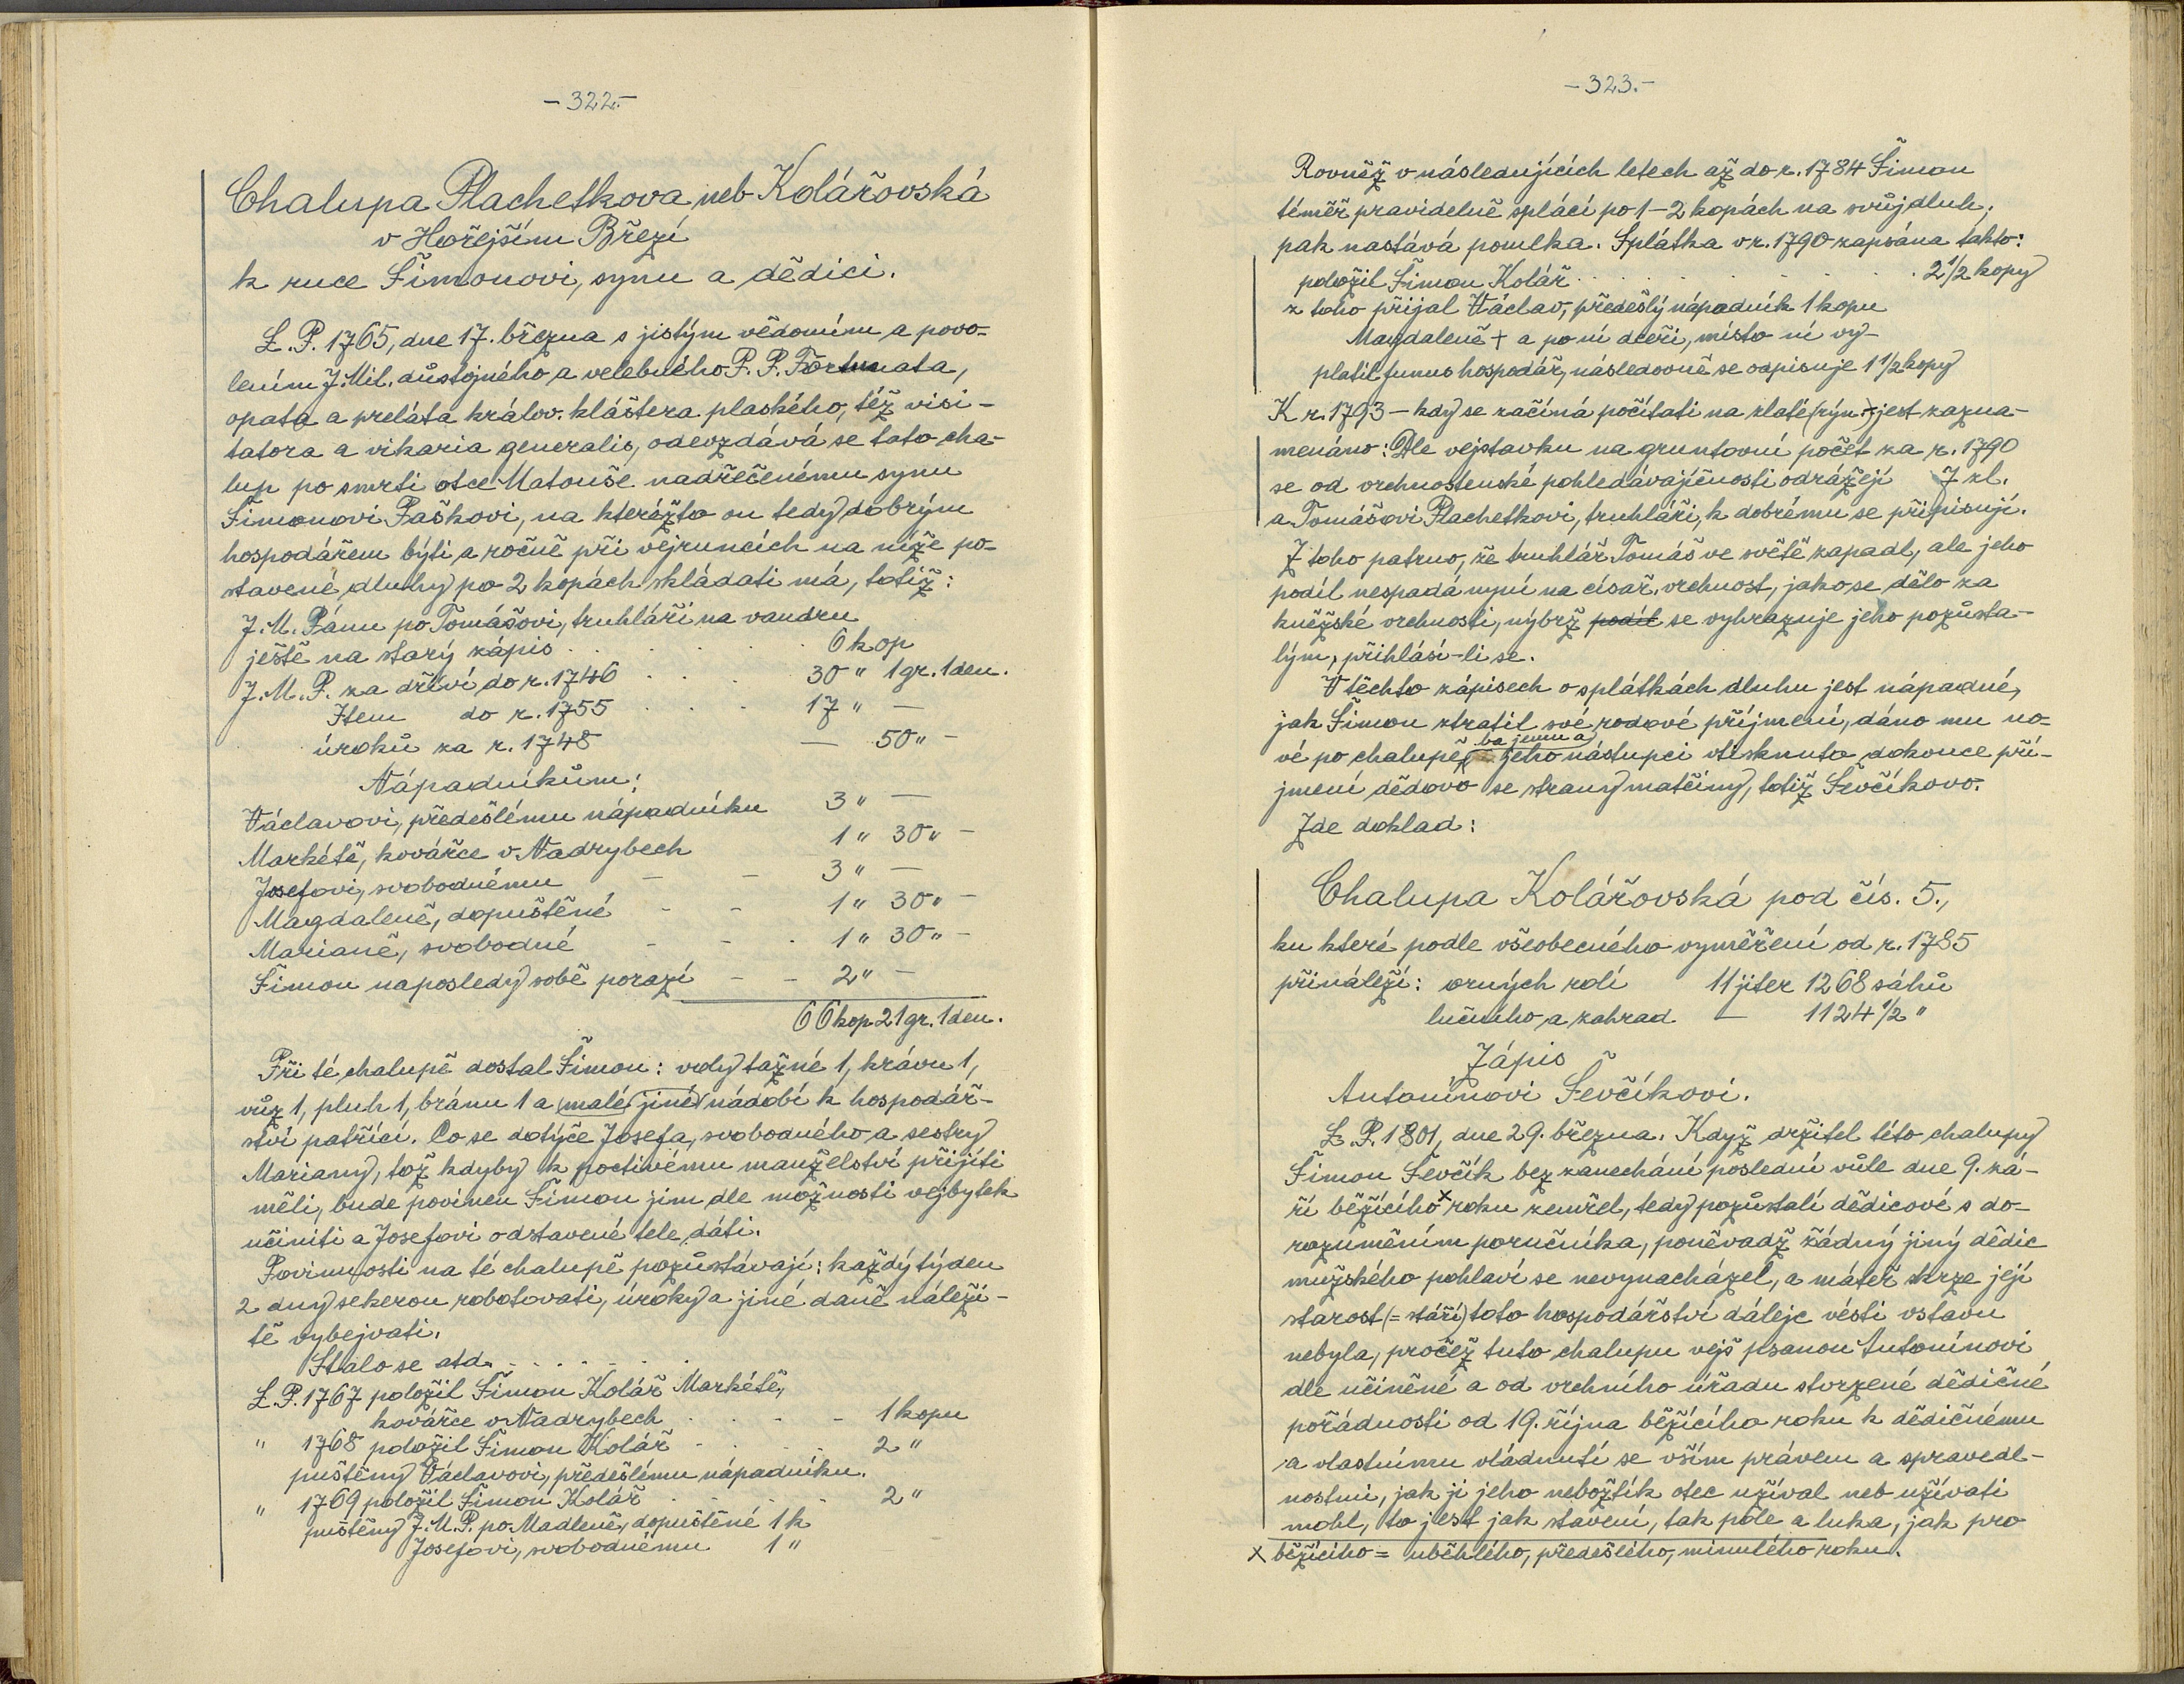 -322.-
Chalupa Plachetkova neb Kolářovská
v Hořejším Březí
k ruce Šimonovi, synu a dědici.
L. P. 1765, dne 17. března s jistým vědomím a povo-
lením J. Mil. důstojného a velebného P. P. Fortunata,
opata a preláta králov. kláštera plaského, též visi-
tatora a vikaria generalis, odevzdává se tato cha-
lup po smrti otce Matouše nadřečenému synu
Šimonovi Paškovi, na kterézto on tedy dobrým
hospodářem býti a ročně při vejruncích na níže po-
stavené dluhy po 2 kopách skládati má, totiž:
J. M. Pánu po Tomášovi, truhláři na vandru
ještě na starý zápis . . . . . . 6 kop
J. M. P. za dříví do r. 1746 . . . 30 " 1 gr. 1 den.
Item do r. 1755 . . . 17 " —
úroků za r. 1748 — 50 " —
Nápadníkům:
Václavovi, předešlému nápadníku 3 " —
Markétě, kovářce v Nadrybech 1 " 30 " —
Josefovi, svobodnému - - 3 " —
Magdaleně, dopuštěné - - 1 " 30 " —
Marianě, svobodné - - . 1 " 30 " —
Šimon naposledy sobě porazí - - 2 " —
66 kop 21 gr. 1 den.
Při té chalupě dostal Šimon: voly tažné 1, krávu 1,
vůz 1, pluh 1, bránu 1 a malé jiné nádobí k hospodář-
ství patřící. Co se dotýče Josefa, svobodného a sestry
Mariany, tož kdyby k poctivému manželství přijíti
měli, bude povinen Šimon jim dle možnosti vejbytek
učiniti a Josefovi odstavené tele dáti.
Povinnosti na té chalupě pozůstávají: každý týden
2 dny sekerou robotovati, úroky a jiné daně náleži-
tě vybejvati.
Stalo se atd. . . . . . .
L. P. 1767 položil Šimon Kolář Markétě,
kovářce v Nadrybech . . . - 1 kopu
" 1768 položil Šimon Kolář - . . . 2 "
puštěny Václavovi, předešlému nápadníku.
" 1769 položil Šimon Kolář . . . 2 "
puštěny J. M. P. po Madleně, dopuštěné 1 k
Josefovi, svobodnému 1 "
-323.-
Rovněž v následujících letech až do r. 1784 Šimon
téměř pravidelně splácí po 1-2 kopách na svůj dluh,
pak nastává pomlka. Splátka v r. 1790 zapsána takto:
položil Šimon Kolář . . . . . . . 2 1/2 kopy
z toho přijal Václav, předešlý nápadník 1 kopu
Magdaleně + a po ní dceři, místo ní vy-
platil funus hospodář, následovně se odpisuje 1 1/2 kopy
K r. 1793 - kdy se začíná počítati na zlaté (rýn.) - jest zazna-
menáno: Dle vejstavku na gruntovní počet za r. 1790
se od vrchnostenské pohledávajícnosti odrážejí 7 zl.
a Tomášovi Plachetkovi, truhláři, k dobrému se připisují.
Z toho patrno, že truhlář Tomáš ve světě zapadl, ale jeho
podíl nespadá nyní na císař. vrchnost, jako se dělo za
kněžské vrchnosti, nýbrž podíl se vyhrazuje jeho pozůsta-
lým, přihlásí-li se.
V těchto zápisech o splátkách dluhu jest nápadné,
jak Šimon ztratil své rodové příjmení, dáno mu no-
ba jemu a
vé po chalupě, jeho nástupci vtisknuto dokonce pří-
jmení dědovo se strany matčiny, totiž Ševčíkovo.
Zde doklad:
Chalupa Kolářovská pod čís. 5.,
ku které podle všeobecného vyměření od r. 1785
přináleží: orných rolí 11 jiter 1268 sáhů
lučního a zahrad — 1124 1/2 "
Zápis
Antonínovi Ševčíkovi.
L. P. 1801, dne 29. března. Když držitel této chalupy
Šimon Ševčík bez zanechání poslední vůle dne 9. zá-
ří běžícího x roku zemřel, tedy pozůstalí dědicové s do-
rozuměním poručníka, poněvadž žádný jiný dědic
mužského pohlaví se nevynacházel, a máteř skrze její
starost (= stáří) toto hospodářství dáleje vésti vstavu
nebyla, pročež tuto chalupu vejš psanou Antonínovi
dle učiněné a od vrchního úřadu stvrzené dědičné
pořádnosti od 19. října běžícího roku k dědičnému
a vlastnímu vládnutí se vším právem a spravedl-
nostmi, jak ji jeho nebožtík otec užíval neb užívati
mohl, to jest jak stavení, tak pole a luka, jak pro
x běžícího = uběhlého, předešlého, minulého roku.